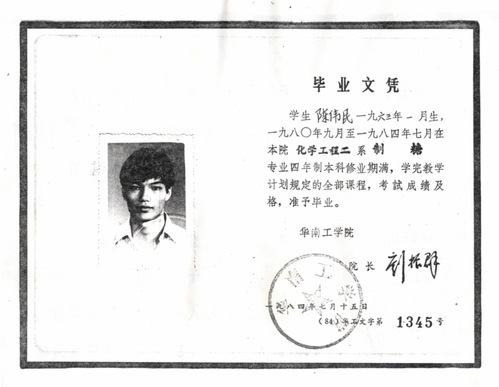 毕业文凭
学生 陈伟民 一九六三年一月生，
一九八〇年九月至一九八四年七月在
本院 化学工程二 系 制 糖
专业四年制本科修业期满，学完教学
计划规定的全部课程，考試成绩及
格，准予毕业。
华南工学院
院长 刘振群
一九八四年七月十五日
(84)华工文字第 1345 号
华南工学院